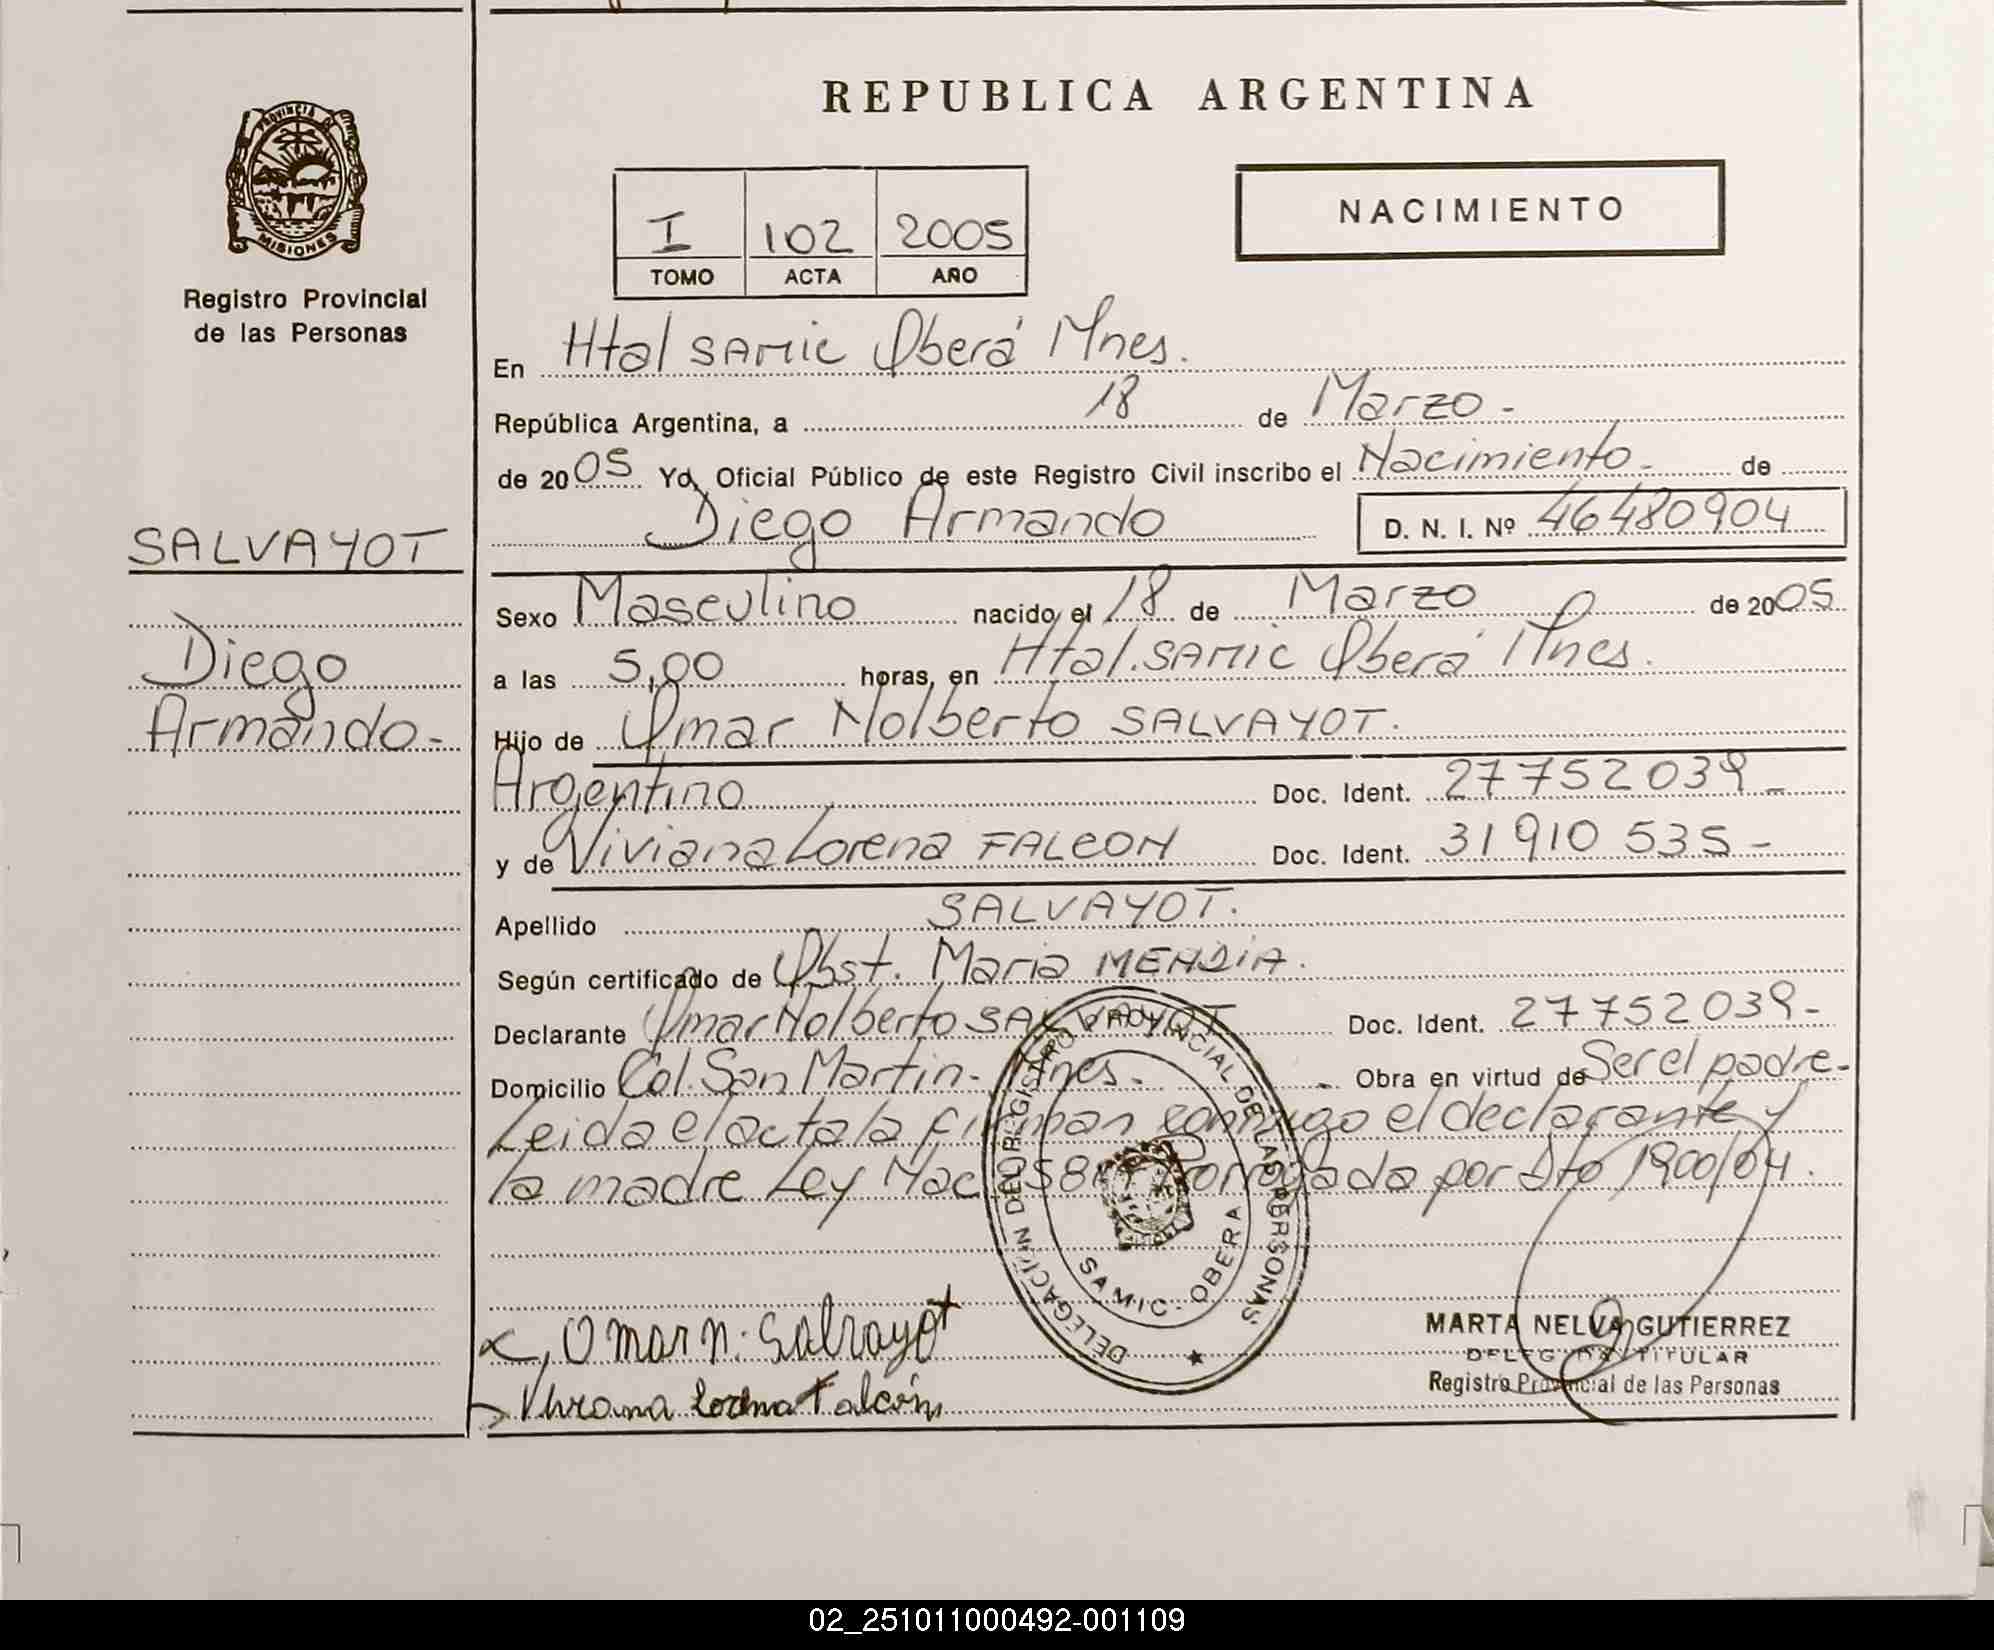 REPUBLICA ARGENTINA
PROVINCIA DE
MISIONES
Registro Provincial
de las Personas
I 102 2005
TOMO ACTA AÑO
NACIMIENTO
En Htal SAMIC Oberá Mnes.
República Argentina, a 18 de Marzo -
de 2005 Yo, Oficial Público de este Registro Civil inscribo el Nacimiento - de
Diego Armando D. N. I. Nº 46480904
SALVAYOT
Diego
Armando -
Sexo Masculino nacido el 18 de Marzo de 2005
a las 5,00 horas, en Htal. SAMIC Oberá Mnes.
Hijo de Omar Nolberto SALVAYOT.
Argentino Doc. Ident. 27752039 -
y de Viviana Lorena FALCON Doc. Ident. 31910 535 -
Apellido SALVAYOT.
Según certificado de Obst. Maria
Declarante Omar Nolberto SALVAYOT Doc. Ident. 27752039 -
Domicilio Col. San Martin - Mnes. - Obra en virtud de Ser el padre -
Leida el acta la firman conmigo el declarante y
la madre Ley Nac porrogada por Dto 1900/04.
DELEGACIÓN DEL REGISTRO PROVINCIAL DE LAS PERSONAS
SAMIC - OBERA
Omar N. Salvayot
Viviana Lorena Falcón
MARTA NELVA GUTIERREZ
DELEGADA TITULAR
Registro Provincial de las Personas
02_251011000492-001109